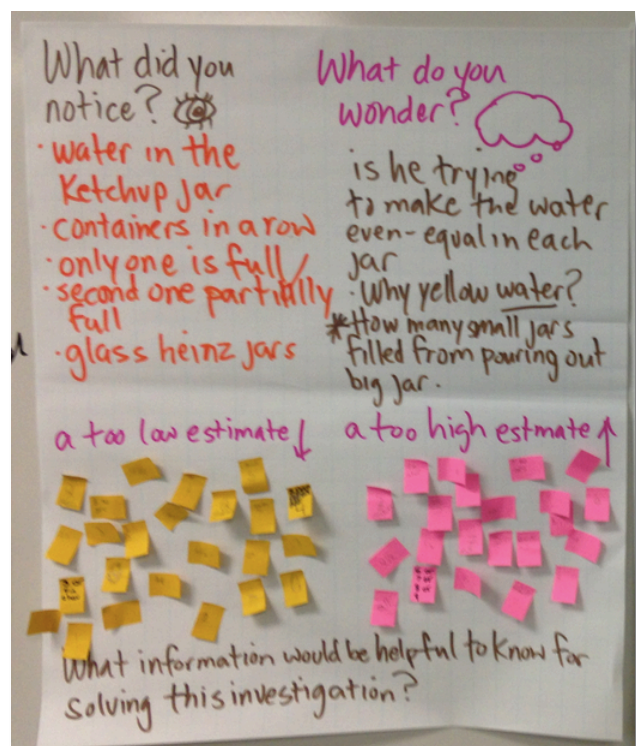 What did you
notice?
· water in the
Ketchup jar
· containers in a row
· only one is full
· second one partially
full
· glass heinz jars
What do you
wonder?
is he trying
to make the water
even-equal in each
jar
· Why yellow water?
*How many small jars
filled from pouring out
big jar.
a too low estimate
a too high estmate
What information would be helpful to know for
solving this investigation?